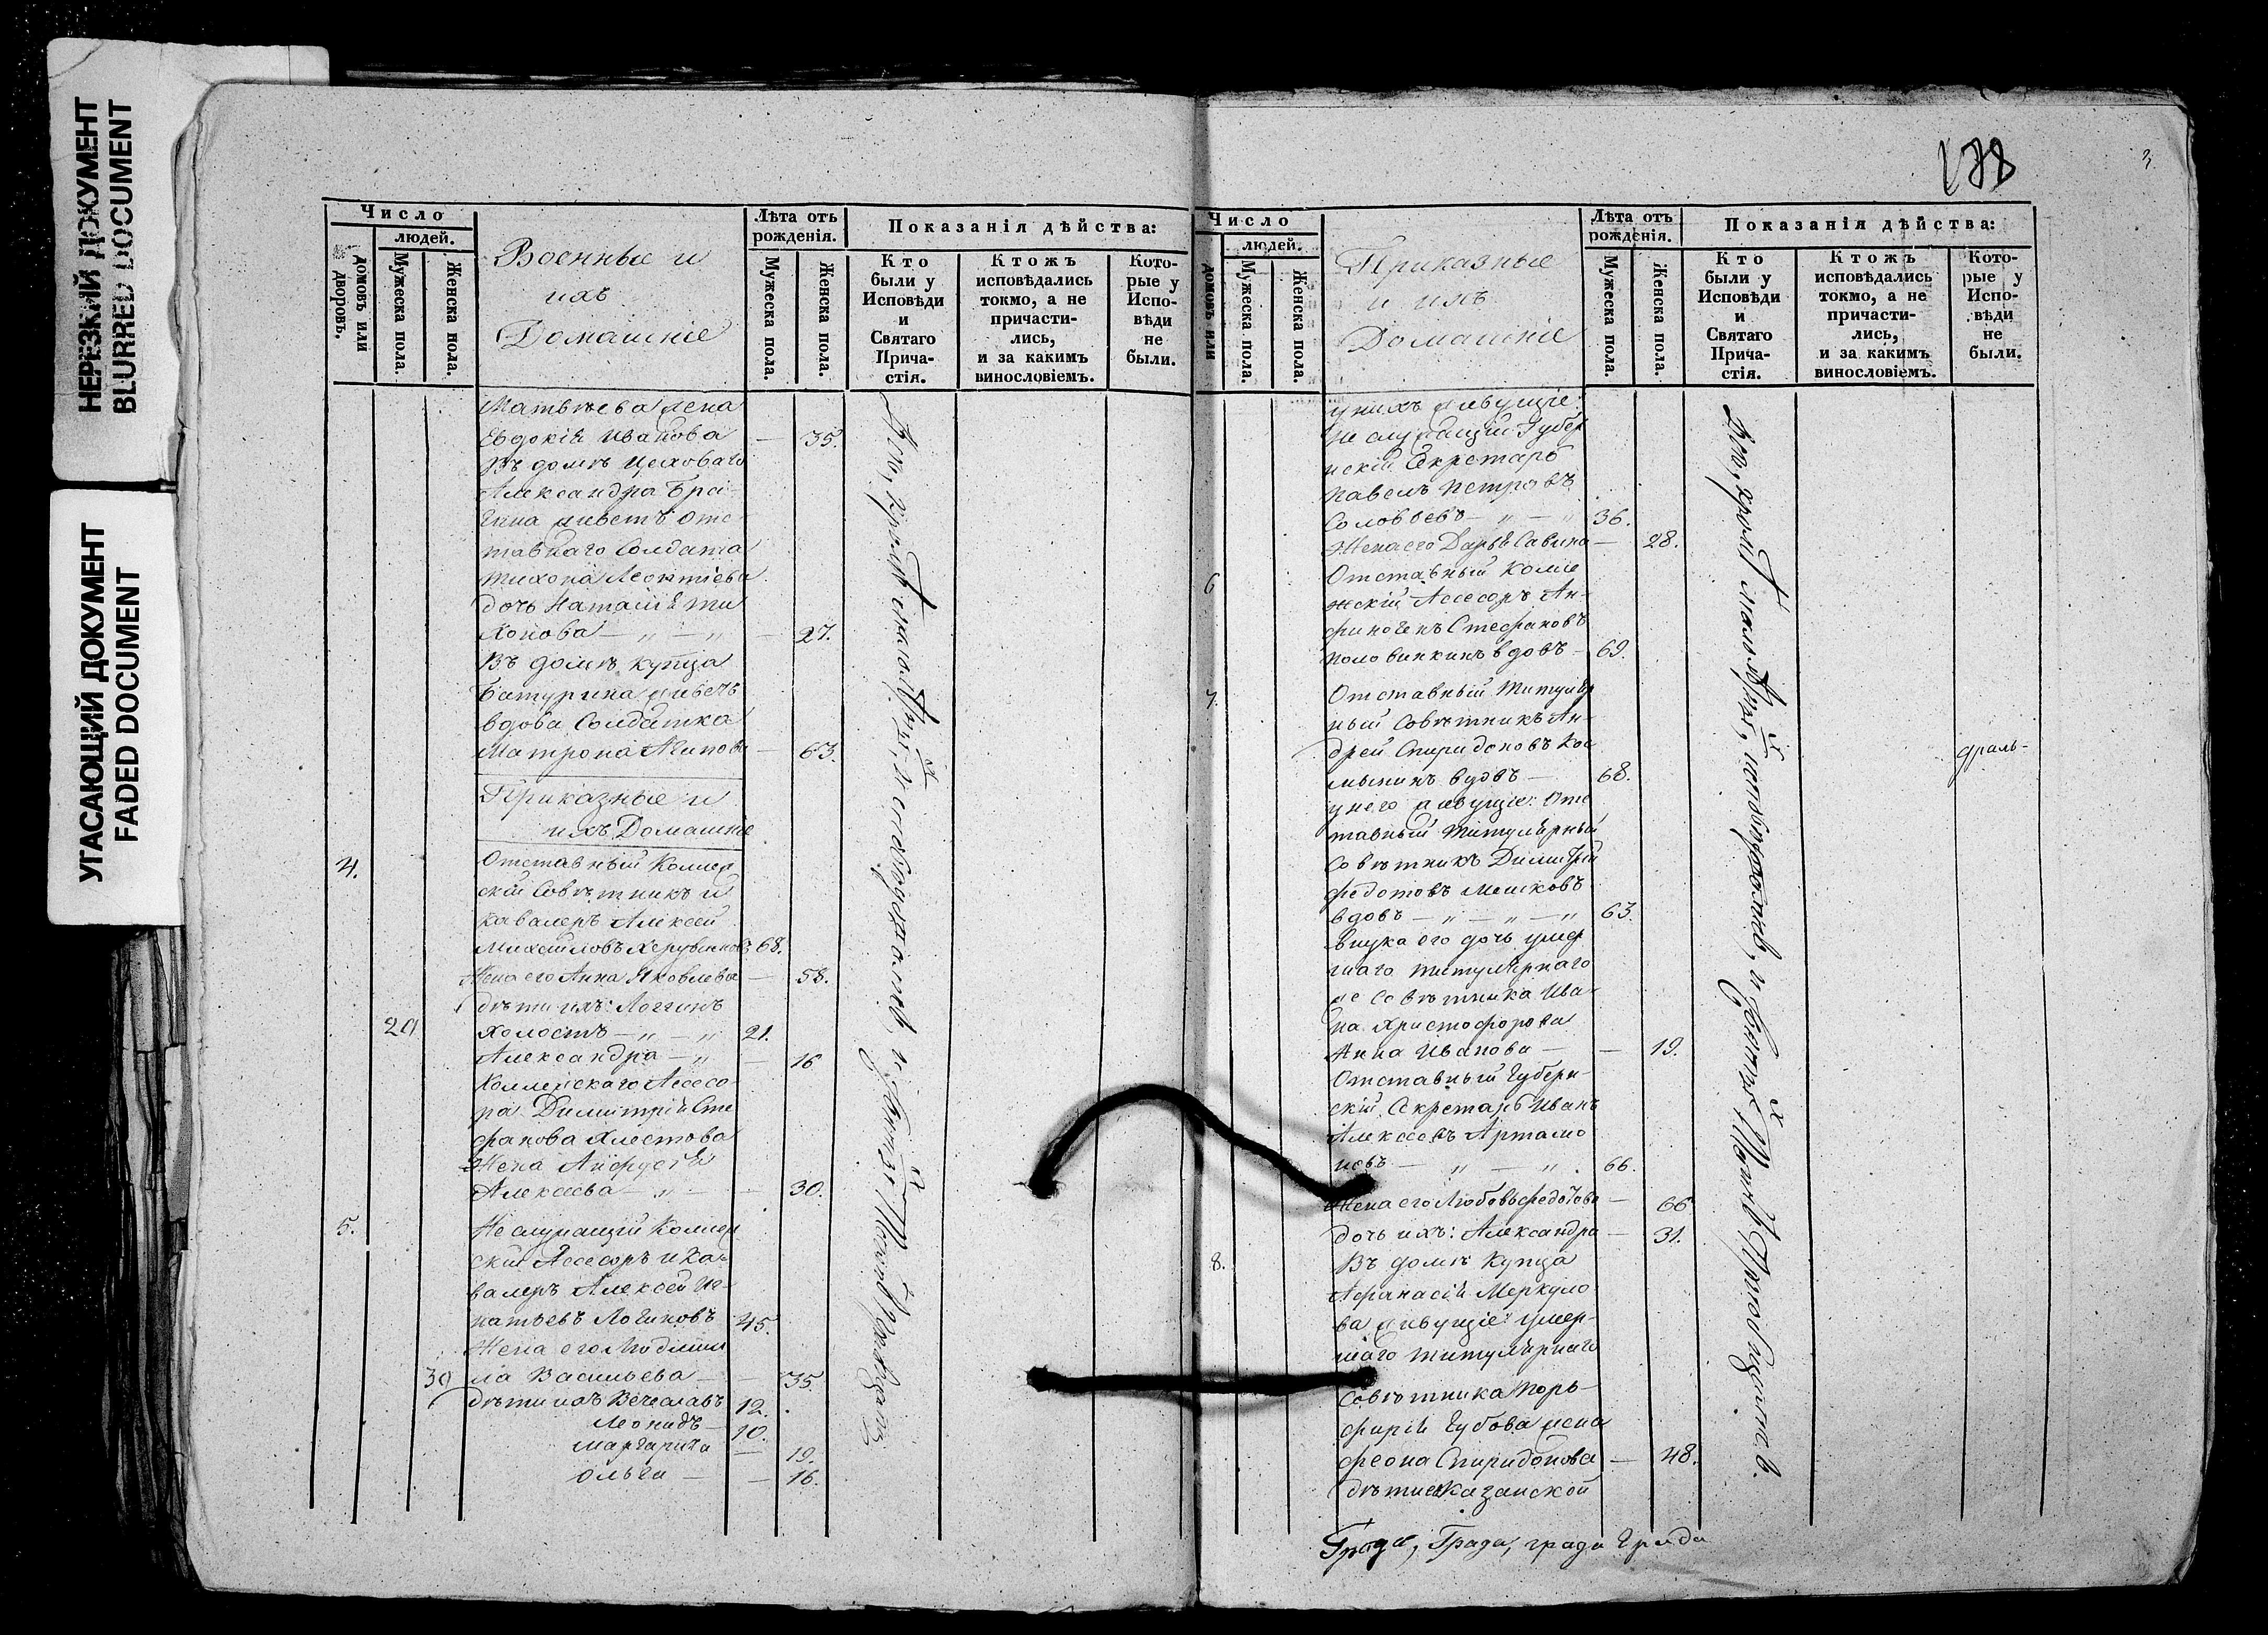 НЕРЕЗКИЙ ДОКУМЕНТ
BLURRED DOCUMENT
УГАСАЮЩИЙ ДОКУМЕНТ
FADED DOCUMENT
Число
людей.
домовъ или дворовъ.
Мужеска пола.
Женска пола.
Военные и
ихъ
Домашніе
Лѣта отъ рожденія.
Мужеска пола.
Женска пола.
Показанія дѣйства:
Кто
были у
Исповѣди
и
Святаго
Прича-
стія.
Ктожъ
исповѣдались
токмо, а не
причасти-
лись,
и за какимъ
винословіемъ.
Кото-
рые у
Испо-
вѣди
не
были.
Матвѣева жена
Евдокія Иванова — 35.
Въ домѣ цеховаго
Александра Бра-
гина живетъ отс-
тавнаго Солдата
Тихона Леонтіева
дочь Наталія Ти
хонова — „ — „ — 27.
Въ домѣ купца
Батурина живетъ
вдова Солдатка
Матрона — 63.
Приказные и
ихъ Домашніе
4. Отставный Коллеж
скій Совѣтникъ и
Кавалеръ Алексей
Михайловъ 68.
Жена его Анна Яковлева — 58.
дѣти ихъ: Логгинъ
20 холостъ — „ — „ 21.
Александра — „ — 16
Коллежскаго Ассесо-
ра Димитрія Сте
фанова Хлестова
Жена
Алексеева — „ — — 30.
5. Не служащій Коллеж
скій Ассесоръ и Ка-
валеръ Алексей Иг-
натьевъ Логиновъ 45.
Жена его Людмил
30 ла Васильева — — 35.
дѣти ихъ Вечеславъ 12.
Леонидъ — 10.
Маргарита — 19.
Ольга — — 16.
138
3
Число
людей.
домовъ или
Мужеска пола.
Женска пола.
Приказные
и ихъ
Домашніе
Лѣта отъ рожденія.
Мужеска пола.
Женска пола.
Показанія дѣйства:
Кто
были у
Исповѣди
и
Святаго
Прича-
стія.
Ктожъ
исповѣдались
токмо, а не
причасти-
лись,
и за какимъ
винословіемъ.
Кото-
рые у
Испо-
вѣди
не
были.
у нихъ живущіе:
не служащій Губер
нскій Секретарь
Павелъ Петровъ
Соловьевъ — „ — „ 36.
Жена его Дарья Савина — 28.
6 Отставный Колле
жскій Ассесоръ Ан-
финогенъ Стефановъ
Половинкинъ вдовъ — 69.
7. Отставный Титуляр
ный Совѣтникъ Ан-
дрей Спиридоновъ Кос
мынинъ вдовъ — 68.
у него живущіе: Отс
тавный Титулярный
Совѣтникъ Димитрій
Федотовъ Мешковъ
вдовъ — „ — „ — „ 63.
Внука его дочь умер
шаго Титулярнаго
Совѣтника Ива-
на Христофорова
Анна Иванова — — 19.
Отставный Губерн-
скій Секретарь Иванъ
Алексеевъ Артамо
новъ — „ — „ . 66.
Жена его Любовь Федотова — 66
дочь ихъ: Александра — 31.
8. Въ домѣ Купца
Афанасія Меркуло-
ва живущіе: умер-
шаго Титулярнаго
Совѣтника Пор-
фирія Губова жена
Феона Спиридонова — 48.
дѣти Казанской
Града, Града, града Града